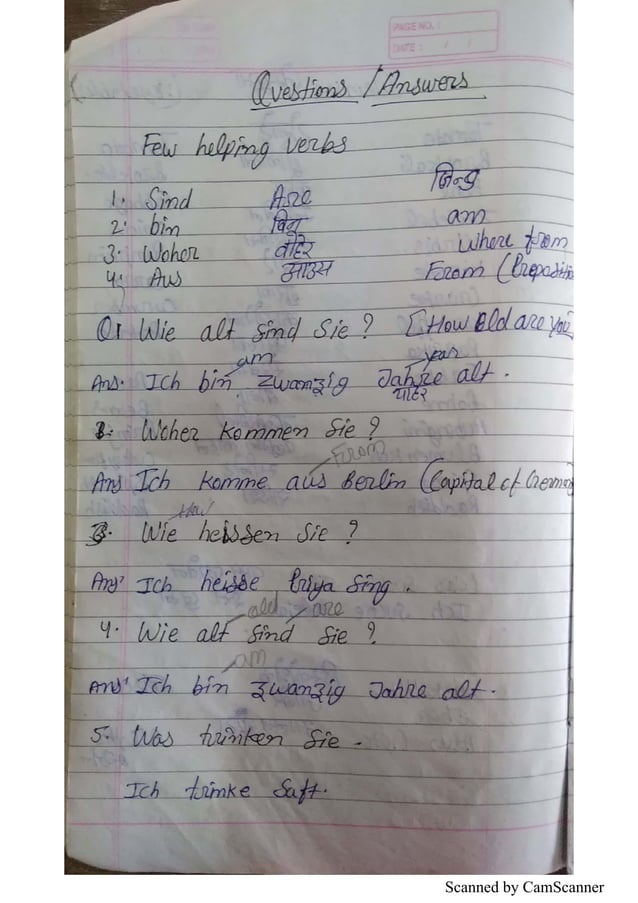 PAGE NO. :
DATE : / /
Questions / Answers
Few helping verbs
जिन्ड
1. Sind Are
2. bin बिन am
3. Woher वोहेर Where from
4. Aus आउस From (Preposition
Q1 Wie alt sind Sie ? [How old are you]
am year
Ans. Ich bin zwanzig Jahre alt .
याहेर
2. Woher kommen Sie ?
From
Ans Ich komme aus Berlin (Capital of Germany
How
3. Wie heissen Sie ?
Ans' Ich heisse Priya Sing .
old are
4. Wie alt sind Sie ?
am
Ans' Ich bin zwanzig Jahre alt .
5. Was trinken Sie .
Ich trinke Saft .
Scanned by CamScanner